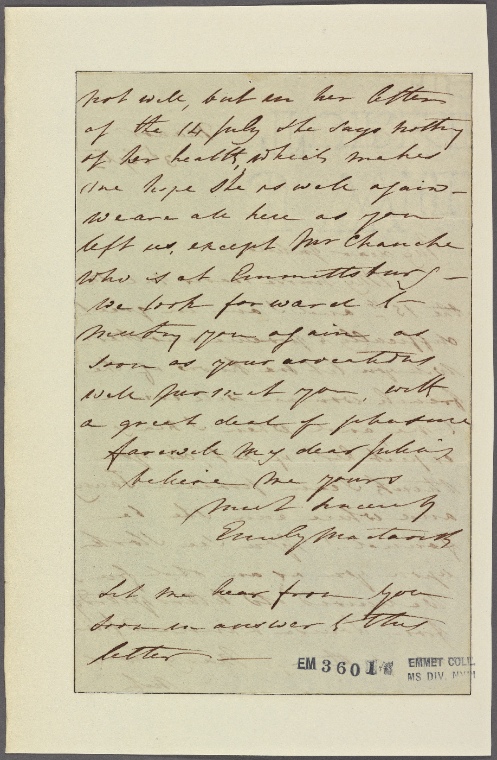 not well, but in her letter
of the 14 July she says nothing
of her health, which makes
me hope she is well again —
we are all here as you
left us, except Mr Chanche
who is at Emmittsburg —
we look forward to
meeting you again as
soon as your avocations
will permit you, with
a great deal of pleasure
farewell my dear Julius
believe me yours
most sincerely
Emily Mactavish
Let me hear from you
soon in answer to this
letter —
EM 3601
EMMET COLL.
MS DIV.